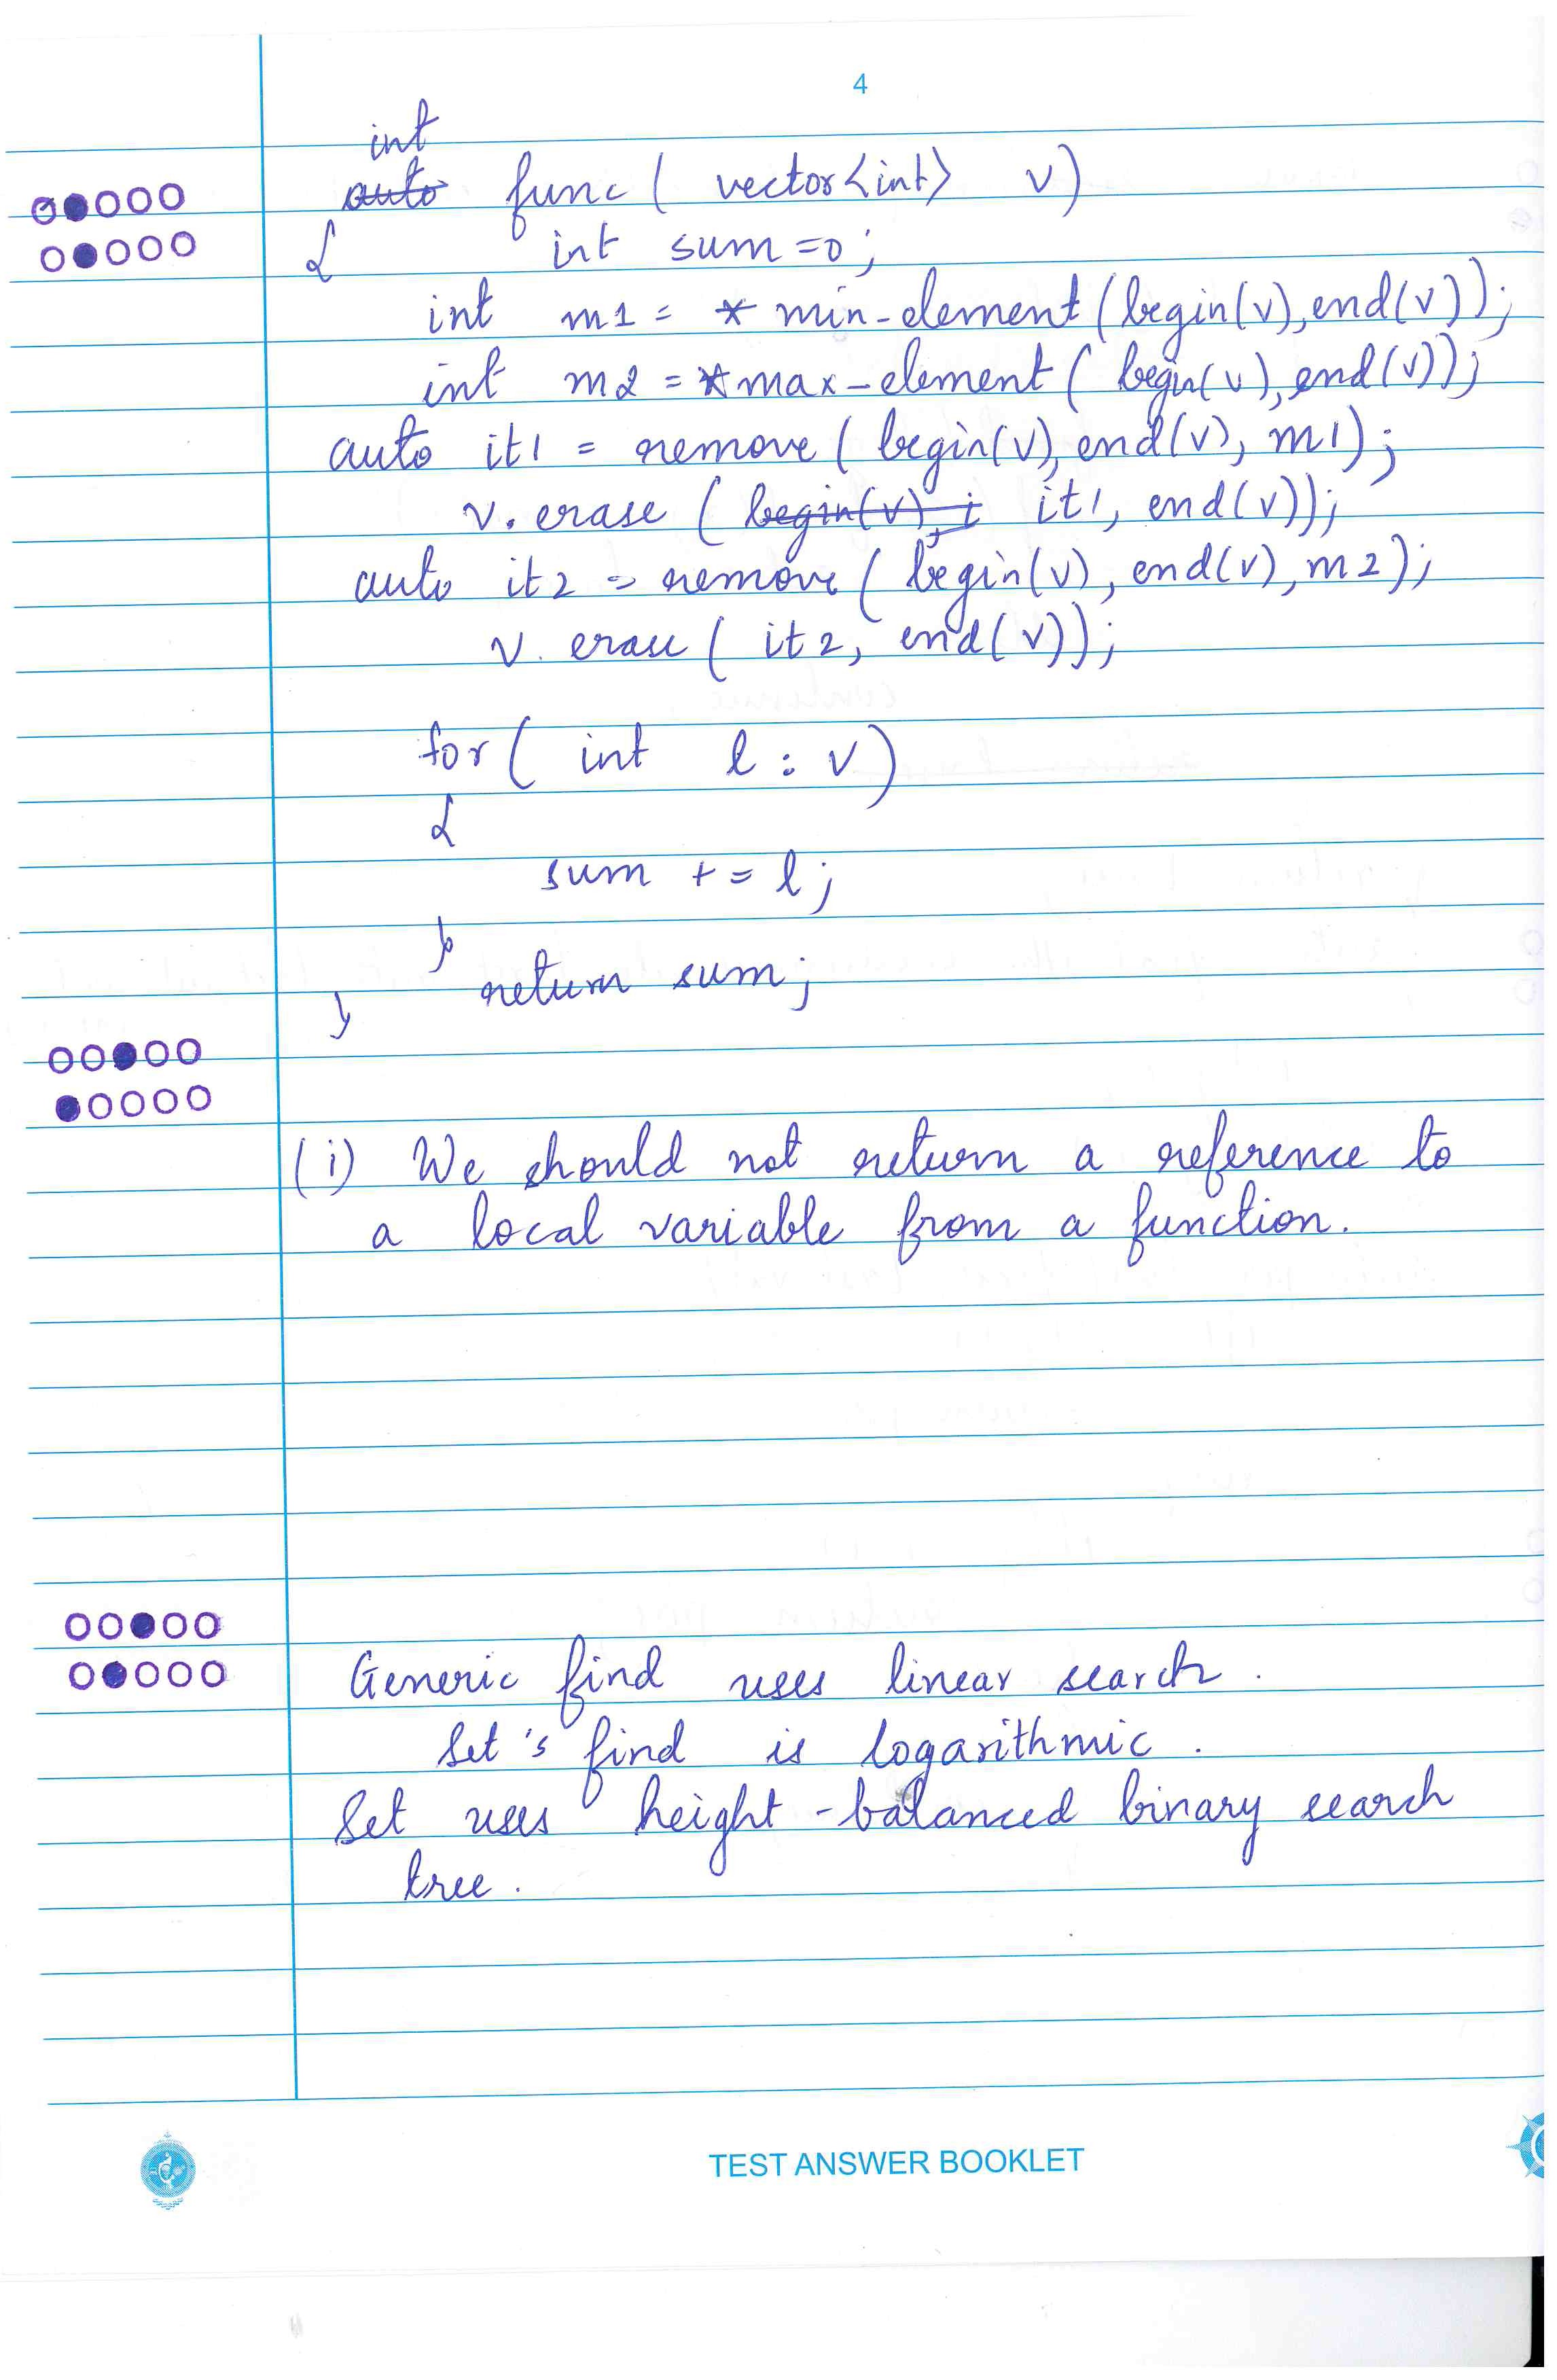 4
int
auto func ( vector<int> v)
{ int sum =0;
int m1 = * min-element (begin(v), end(v));
int m2 = *max-element ( begin(v), end(v));
auto it1 = remove ( begin(v), end(v), m1);
v. erase ( begin(v), i it1, end(v));
auto it2 = remove ( begin(v), end(v), m2);
v. erase ( it2, end(v));
for ( int l : v)
{
sum += l;
}
return sum;
}
(i) We should not return a reference to
a local variable from a function.
Generic find uses linear search.
Set's find is logarithmic.
Set uses height-balanced binary search
tree.
TEST ANSWER BOOKLET